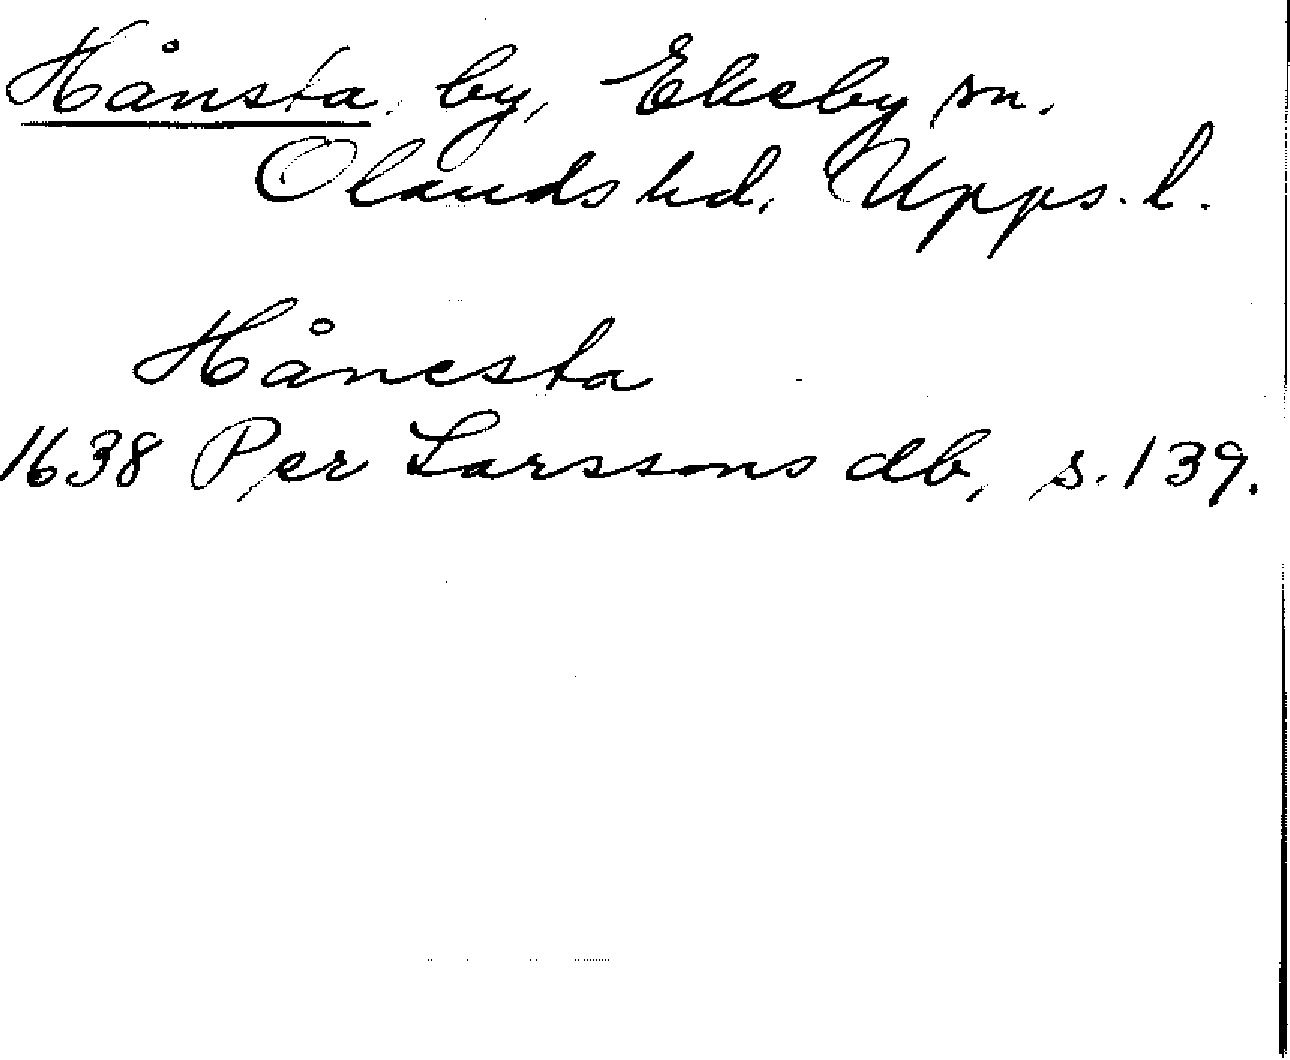 Hånsta, by, Ekeby sn.
Olands hd, Upps. l.
Hånesta
1638 Per Larssons db, s. 139.